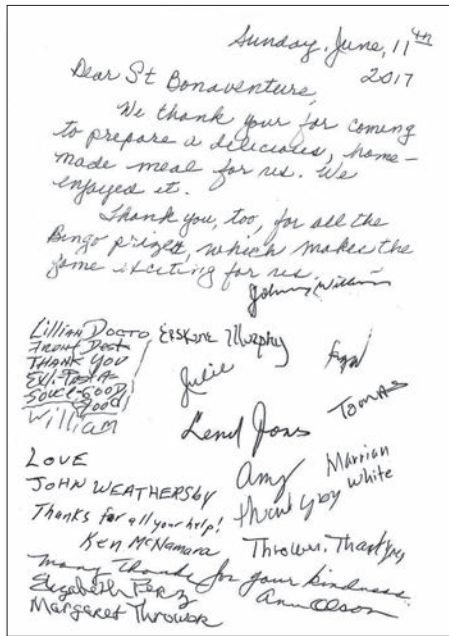 Sunday, June, 11th
2017
Dear St Bonaventure,
We thank your for coming
to prepare a delicious, home-
made meal for us. We
enjoyed it.
Thank you, too, for all the
Bingo prizes, which makes the
game exciting for us.
Johnny William
Lillian Docto
Front Desk
THANK YOU
Good
William
Erskine Murphy
Julie
TOMAS
Amy
Thank you
Marrian
White
LOVE
JOHN WEATHERSBY
Thanks for all your help!
Ken McNamara
Thrower, Thank you
Many thanks for your kindness.
Ann Olson
Elizabeth Perz
Margaret Thrower